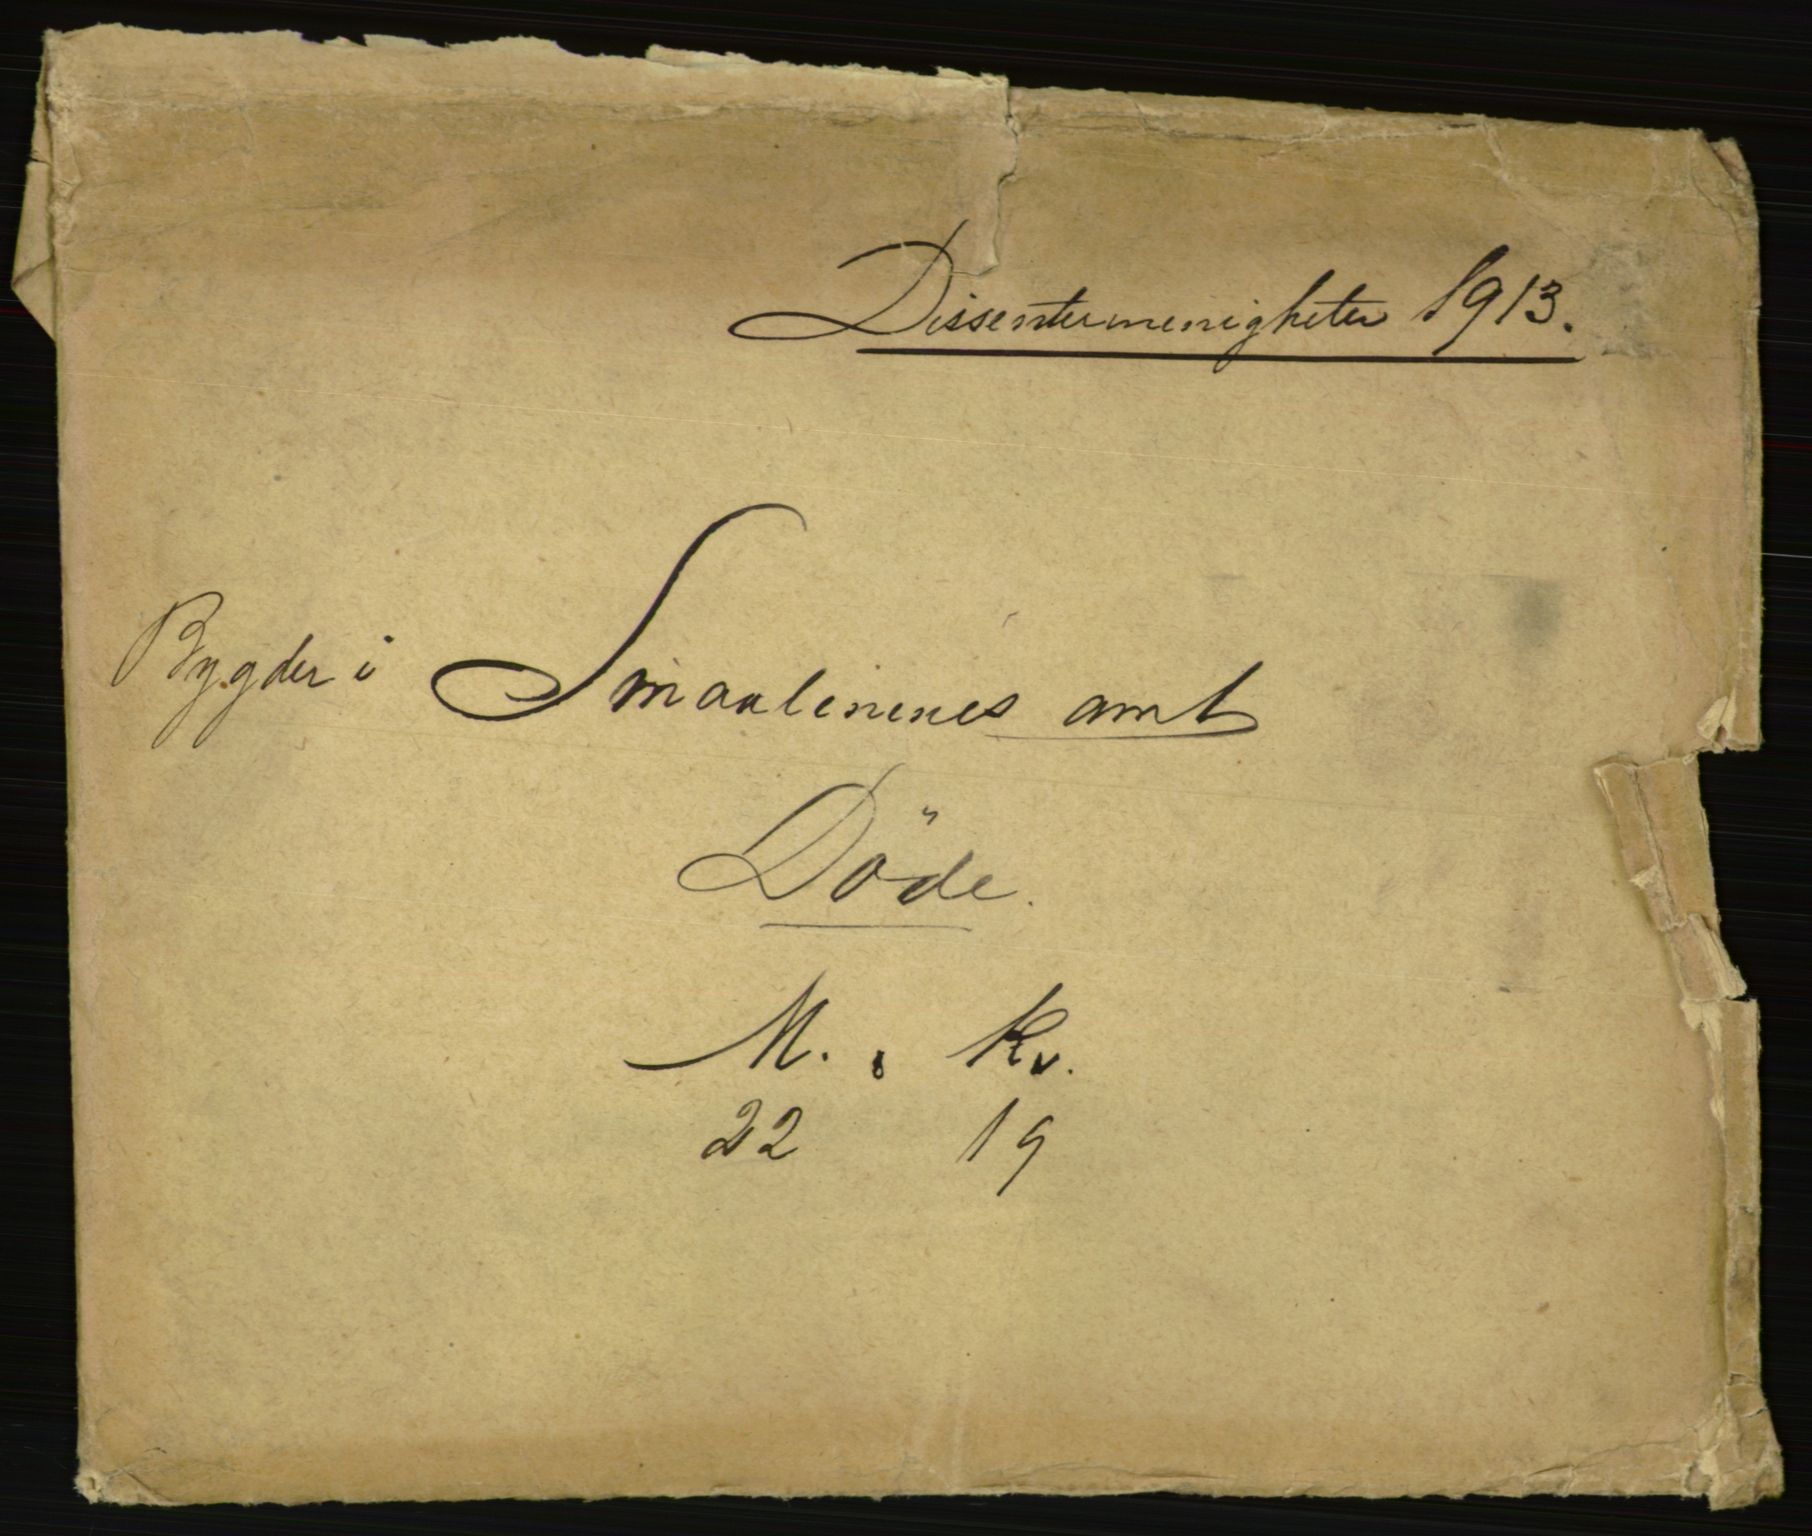 Dissentermenigheter 1913.
Bygder i Smaalenenes amt
Döde.
M. Kv.
22 19